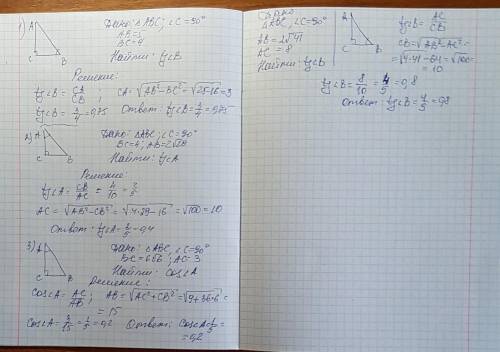 1) A
C B
Дано: △ABC; ∠C=90°
AB=5
BC=4
Найти: tg∠B
Решение:
tg∠B = CA/CB ; CA = √AB²-BC² = √25-16 = 3
tg∠B = 3/4 = 0,75 Ответ: tg∠B = 3/4 = 0,75
2) A
C B
Дано: △ABC, ∠C=90°
BC=4; AB=2√29
Найти: tg∠A
Решение:
tg∠A = CB/AC = 4/10 = 2/5
AC = √AB²-CB² = √4·29-16 = √100 = 10
Ответ: tg∠A = 2/5 = 0,4
3) A
C B
Дано: △ABC, ∠C=90°
BC=6√6; AC=3
Найти: cos∠A
Решение:
cos∠A = AC/AB ; AB = √AC²+CB² = √9+36·6 =
= 15
cos∠A = 3/15 = 1/5 = 0,2 Ответ: cos∠A = 1/5 =
= 0,2
Дано
△ABC, ∠C=90°
AB=2√41
AC=8
Найти: tg∠B
A
C B
tg∠B = AC/CB
CB = √AB²-AC² =
= √4·41-64 = √100 =
= 10
tg∠B = 8/10 = 4/5 = 0,8
Ответ: tg∠B = 4/5 = 0,8